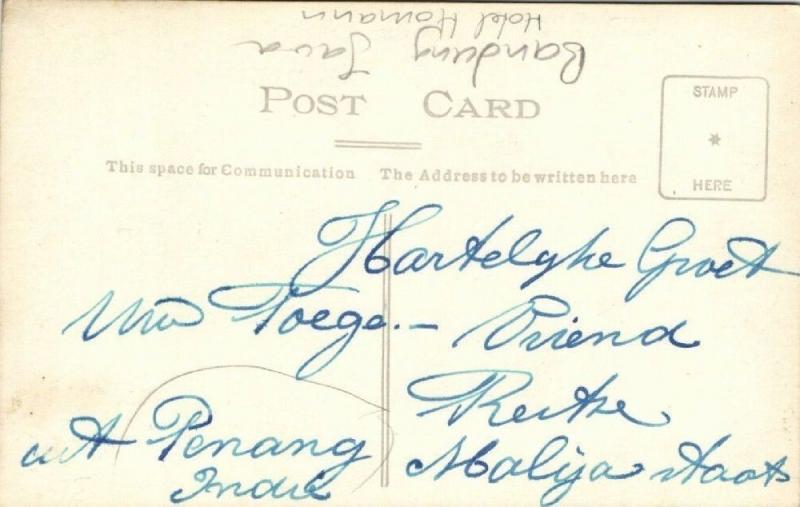 Hotel Homann
Bandung Java
POST CARD
STAMP
HERE
This space for Communication The Address to be written here
Hartelyke Groet
Uw Toege.- Vriend
uit Penang
Indië
Malija staats